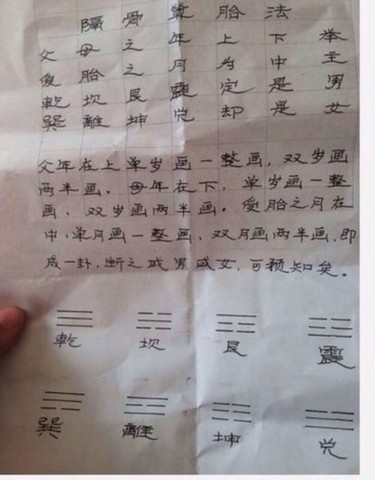 隔骨胎法
父母之年上下举
受胎之月为中主
乾坎艮震定是男
巽離坤兑却是女
父年在上单岁画一整画,双岁画
两半画。母年在下,单岁画一整
画,双岁画两半画。受胎之月在
中,单月画一整画,双月画两半画,即
成一卦,断之或男或女,可预知矣。
乾 坎 艮 震
巽 離 坤 兑